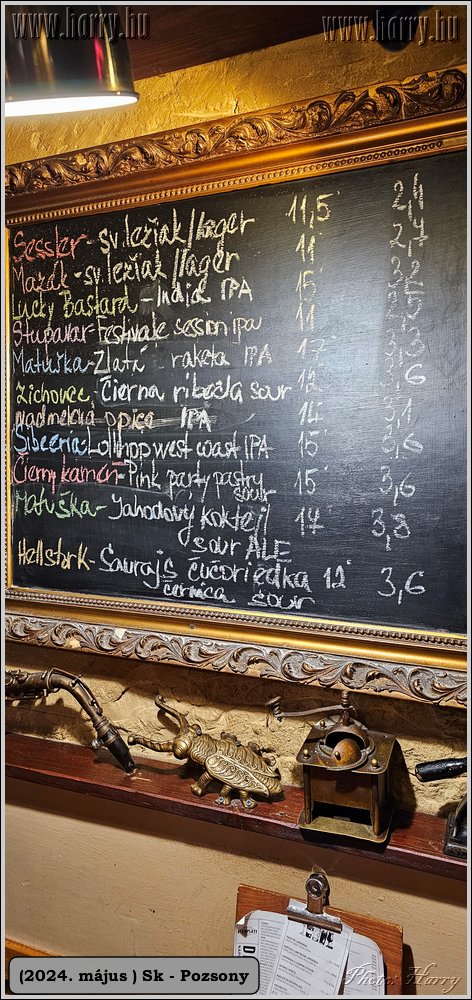 www.harry.hu www.harry.hu
Sessler - sv. ležiak/lager 11,5° 2,4
Mazák - sv. ležiak/lager 11° 2,7
Lucky Bastard - India IPA 15° 3,2
Stupavar - Festivale session ipa 11
Matuška - Zlatá raketa IPA 17° 3,3
Zichovec; Čierna ribezľa sour 12 3,6
nadmelená opica IPA 14° 3,1
Sibeeria: Lollihop west coast IPA 15° 3,6
Čierny kameň - Pink party pastry sour 15° 3,6
Matuška - Jahodový koktejl 14 3,8
sour ALE
Hellstork - Saurajs čučoriedka 12° 3,6
černica sour
(2024. május ) Sk - Pozsony
Photo: Harry